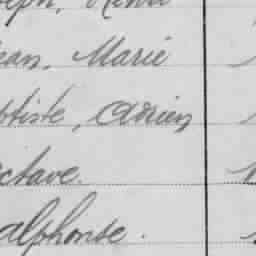 eph, Henri
ean, Marie
ptiste, Adrien
ctave.
alphonse.